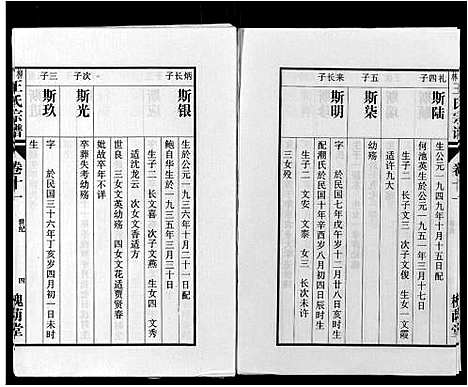 礼四子
斯陆
生於公元一九四九年十月十五日配
何池英生於公元一九五一年三月十七日
生子二 长子文三 次子文俊 生女一 文霞
适许九大
五子
斯柒
幼殇
来长子
斯明
字 於民国七年戊午岁十二月廿八日亥时生
配溷氏於民国十年辛酉岁八月初四日辰时生
生子二 文安 文泰 女三 长次未许
三女殁
炳长子
斯银
生於公元一九三六年十月二十一日配
鲍自华生於一九三五年三月三十日
生子二 长文喜 次子文燕 生女四 一文秀
适沈龙云 次女文香适方
世良 三女文英幼殇 四女文花适贾贤春
次子
斯光
妣故年不详
卒葬失考幼殇
三子
斯玖
字 於民国三十六年丁亥岁四月初一日未时
王氏宗谱
卷十一
世纪
四
槐荫堂